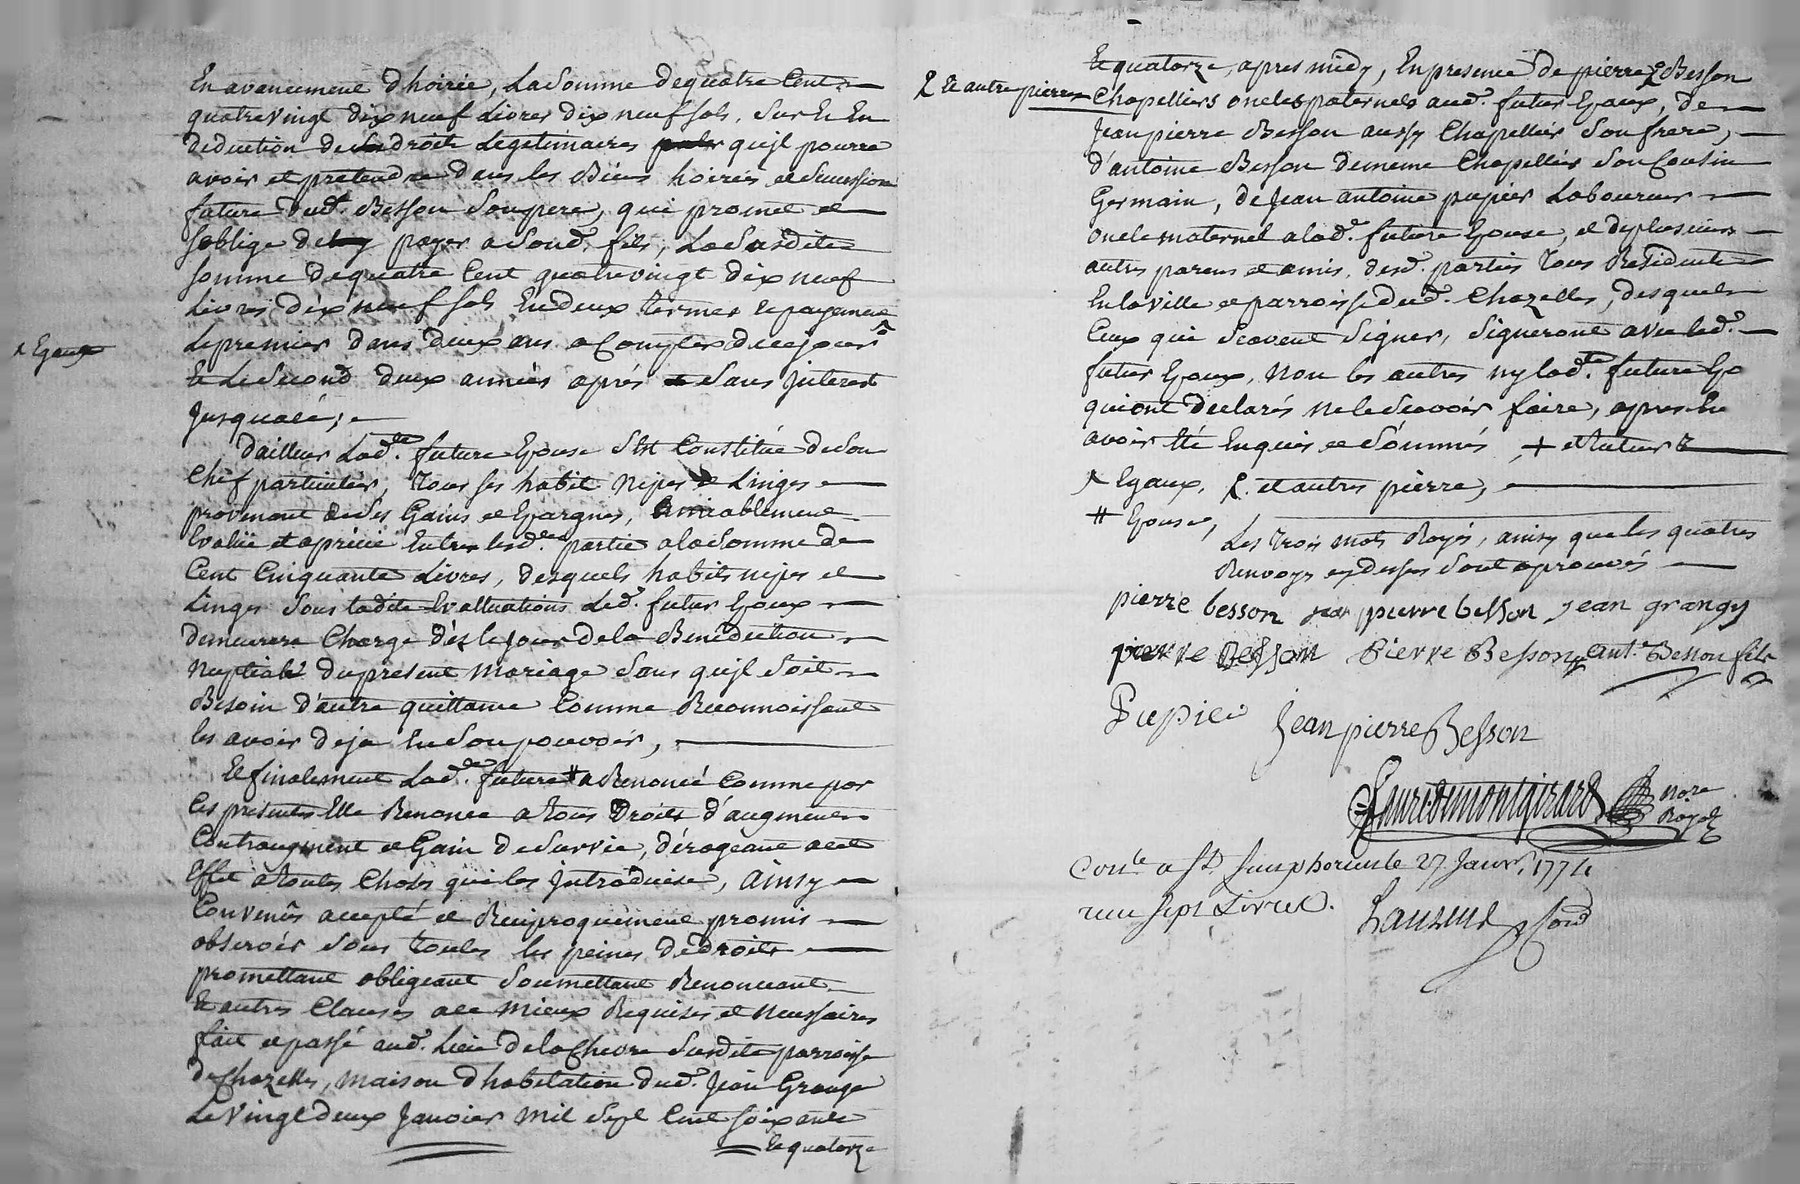 En avancement d'hoirie, La Somme de quatre Cent
quatre vingt dix neuf Livres dix neuf sols, Sur et En
deduction de ses droits Legitimaires qu'jl pourra
avoir et pretendre dans les Biens hoiries et Succession
future dud. Besson Son pere, qui promet et
soblige de payer a Sond. fils, La Susdite
somme de quatre Cent quatre vingt dix neuf
Livres dix neuf sols En deux termes et payement
⅄ Egaux
Le premier dans deux ans a Compter de cejour
Et Le Second deux années aprés Sans Jnterest
Jusqualé;
D'ailleur Lad.te future Epouse S'est Constitué de Son
Chef particulier, Tous ses habit Nipes et Linges
provenant de Ses Gains et Epargnes, Amiablement
Evalüé et aprécié Entre lesd.es partie a la Somme de
Cent Cinquante Livres, desquels habits nipes et
Linges Sous ladite Evalluations Led. futur Epoux
demeurera Chargé dès le jour de la Benediction
Nuptiale du present Mariage Sans qu'jl Soit
Besoin d'autre quittance Comme Reconnoissant
les avoir deja En Son pouvoir,
Et finalement Lad.te future # a Renoncé Comme par
Ces presentes Elle Renonce a tous Droits d'augment
Contraugment et Gain de Survie, dérogeant a cet
Effet a toutes Choses qui les Jntroduise, Ainsy
Convenûs accepté et Reciproquement promis
observér Sous toutes les peines de droits
promettant obligeant Soumettant Renonceant
Et autres Clauses a ce Mieux Requises et Necessaires
fait et passé aud. Lieu de la Chevre Susdite parroisse
de Chazelles, Maison d'habitation dud. Jean Grange
Le Vingt deux Janvier Mil Sept Cent Soixante
Et quatorze
Et quatorze, apres midy, En presence de pierre Besson
et autre pierre
Chapelliers oncles paternels aud. futur Epoux, de
Jean pierre Besson aussy Chapellier Son frere,
d'antoine Besson de meme Chapellier Son Cousin
Germain, de Jean antoine pupier Laboureur
oncle maternel a lad.e future Epouse, et de plusieurs
autres parens et amis, desd. parties Tous Residents
En la ville et parroisse dud. Chazelles, desquels
Ceux qui Scavent Signer, Signeront avec led.
futur Epoux, Non les autres ny lad.te future Ep
qui ont declarés ne le Scavoir faire, apres En
avoir été Enquis et Sommés
⅄ Egaux, et autres pierre,
# Epouse,
Les trois mots Rayés, ainsy que les quatres
Renvoys cy dessus Sont aprouvés
pierre besson jean pierre besson jean grangy
pierre Besson Pierre Besson ant. Besson fils
Pupier Jean pierre Besson
Faure de montgirard Nore
Royal
Con.le a St. Simphorien le 27 Janv.r 1774
recu sept Livres.